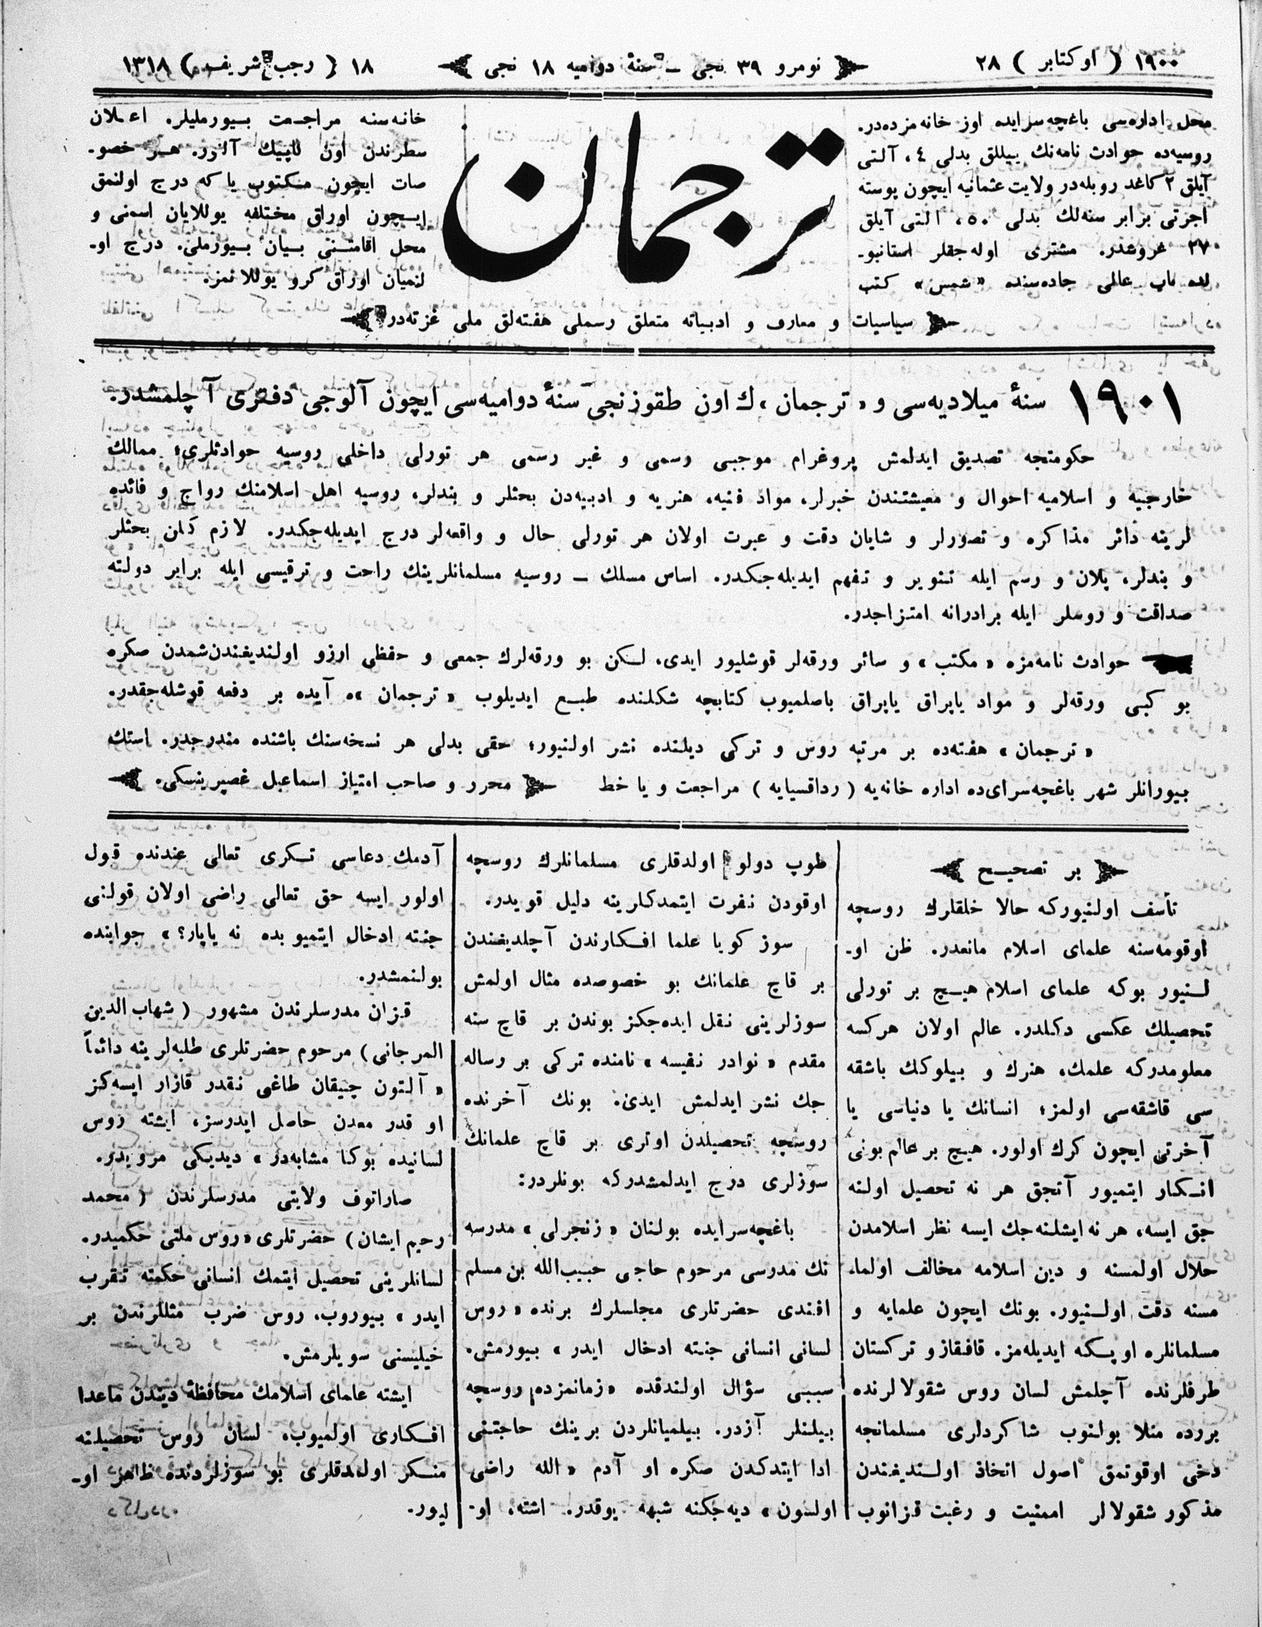 ١٩٠٠ ( اوكتابر ) ٢٨
نومرو ٣٩ نجى ـ سنۀ دواميه ١٨ نجى
١٨ ( رجب شريف ) ١٣١٨
محل اداره‌سى باغچه‌سرايده اوز خانه مزده‌در.
روسيه‌ده حوادث نامه‌نك ييللق بدلى ٤، آلتى
آيلق ٢ كاغد روبله‌در ولايت عثمانيه ايچون پوسته
اجرتى برابر سنه‌لك بدلى ٥٠، التى آيلق
٢٧ غروشدر. مشترى اوله‌جقلر استانبو-
لده باب عالى جاده‌سنده «شمس» كتب
ترجمان
خانه‌سنه مراجعت بيورمليلر. اعلان
سطرندن اون كاپيك آلنور. هر خصو-
صات ايچون مكتوب ياكه درج اولنمق
ايچون اوراق مختلفه يوللايان اسمنى و
محل اقامتنى بيان بيورملى. درج او-
لنميان اوراق كرو يوللانمز.
سياسيات و معارف و ادبياته متعلق رسملى هفته‌لق ملى غزته‌در
١٩٠١ سنۀ ميلاديه‌سى و «ترجمان»ك اون طقوزنجى سنۀ دواميه‌سى ايچون آلوجى دفترى آچلمشدر.
حكومتجه تصديق ايدلمش پروغرام موجبى رسمى و غير رسمى هر تورلى داخلى روسيه حوادثلرى؛ ممالك
خارجيه و اسلاميه احوال و معيشتندن خبرلر، مواد فنيه، هنريه و ادبيه‌دن بحثلر و بندلر، روسيه اهل اسلامنك رواج و فائده
لرينه دائر مذاكره و تصورلر و شايان دقت و عبرت اولان هر تورلى حال و واقعه‌لر درج ايديله‌جكدر. لازم كلن بحثلر
و بندلر، پلان و رسم ايله تنوير و تفهم ايديله‌جكدر. اساس مسلك ــ روسيه مسلمانلرينك راحت و ترقيسى ايله برابر دولته
صداقت و روسلر ايله برادرانه امتزاجدر.
حوادث نامه‌مزه «مكتب» و سائر ورقه‌لر قوشليور ايدى. لكن بو ورقه‌لرك جمعى و حفظى ارزو اولنديغندن شمدن صكره
بو كبى ورقه‌لر و مواد ياپراق ياپراق باصلميوب كتابچه شكلنده طبع ايديلوب «ترجمان»ه آيده بر دفعه قوشله‌جقدر.
«ترجمان» هفته‌ده بر مرتبه روس و تركى ديلنده نشر اولنيور؛ حقى بدلى هر نسخه‌سنك باشنده مندرجدر. استك
بيورانلر شهر باغچه‌سراى‌ده اداره خانه‌يه ( رداقسيايه ) مراجعت و يا خط
محرر و صاحب امتياز اسماعيل غصپرينسكى.
بر تصحيح
تأسف اولنيوركه حالا خلقلرك روسچه
اوقومه‌سنه علماى اسلام مانعدر. ظن او-
لنيور بوكه علماى اسلام هيچ بر تورلى
تحصيلك عكسى دكلدر. عالم اولان هركسه
معلومدركه علمك، هنرك و بيلوكك باشقه
سى قاشقه‌سى اولمز؛ انسانك يا دنياسى يا
آخرتى ايچون كرك اولور. هيچ بر عالم بونى
انكار ايتميور آنجق هر نه تحصيل اولنه
جق ايسه، هر نه ايشلنه‌جك ايسه نظر اسلامدن
حلال اولمسنه و دين اسلامه مخالف اولما-
مسنه دقت اولنيور. بونك ايچون علمايه و
مسلمانلره اوپكه ايديله‌مز. قافقاز و تركستان
طرفلرنده آچلمش لسان روس شقولالرنده
بررده مثلا بولنوب شاكردلرى مسلمانجه
دخى اوقوتمق اصول اتخاذ اولنديغندن
مذكور شقولالر امنيت و رغبت قزانوب
طوپ دولو اولدقلرى مسلمانلرك روسچه
اوقودن نفرت ايتمدكلرينه دليل قويدر.
سوز كويا علما افكارندن آچلديغندن
بر قاچ علمانك بو خصوصده مثال اولمش
سوزلرينى نقل ايده‌جكز بوندن بر قاچ سنه
مقدم «نوادر نفيسه» نامنده تركى بر رساله
جك نشر ايدلمش ايدى. بونك آخرنده
روسچه تحصيلدن اوترى بر قاچ علمانك
سوزلرى درج ايدلمشدركه بونلردر:
باغچه‌سرايده بولنان «زنجرلى» مدرسه
نك مدرسى مرحوم حاجى حبيب‌الله بن مسلم
افندى حضرتلرى مجلسلرك برنده «روس
لسانى انسانى جنته ادخال ايدر» بيورمش.
سببى سؤال اولندقده «زمانمزده روسچه
بيلنلر آزدر. بيلميانلردن برينك حاجتنى
ادا ايتدكدن صكره او آدم «الله راضى
اولسون» ديه‌جكنه شبهه يوقدر. اشته، او-
آدمك دعاسى تكرى تعالى عندنده قبول
اولور ايسه حق تعالى راضى اولان قولنى
جنته ادخال ايتميوبده نه ياپار؟» جوابنده
بولنمشدر.
قزان مدرسلرندن مشهور ( شهاب الدين
المرجانى ) مرحوم حضرتلرى طلبه‌لرينه دائماً
«آلتون چيقان طاغى نقدر قازار ايسه‌كز
او قدر معدن حاصل ايدرسز، ايشته روس
لسانيده بوكا مشابه‌در» ديديكى مرويدر.
صاراتوف ولايتى مدرسلرندن ( محمد
رحيم ايشان ) حضرتلرى «روس ملتى حكميدر.
لسانلرينى تحصيل ايتمك انسانى حكمته تقرب
ايدر» بيوروب، روس ضرب مثللرندن بر
خيليسنى سويلرمش.
ايشته علماى اسلامك محافظۀ ديندن ماعدا
افكارى اولميوب، لسان روس تحصيلنه
منكر اولمدقلرى بو سوزلردنده ظاهر او-
ليور.